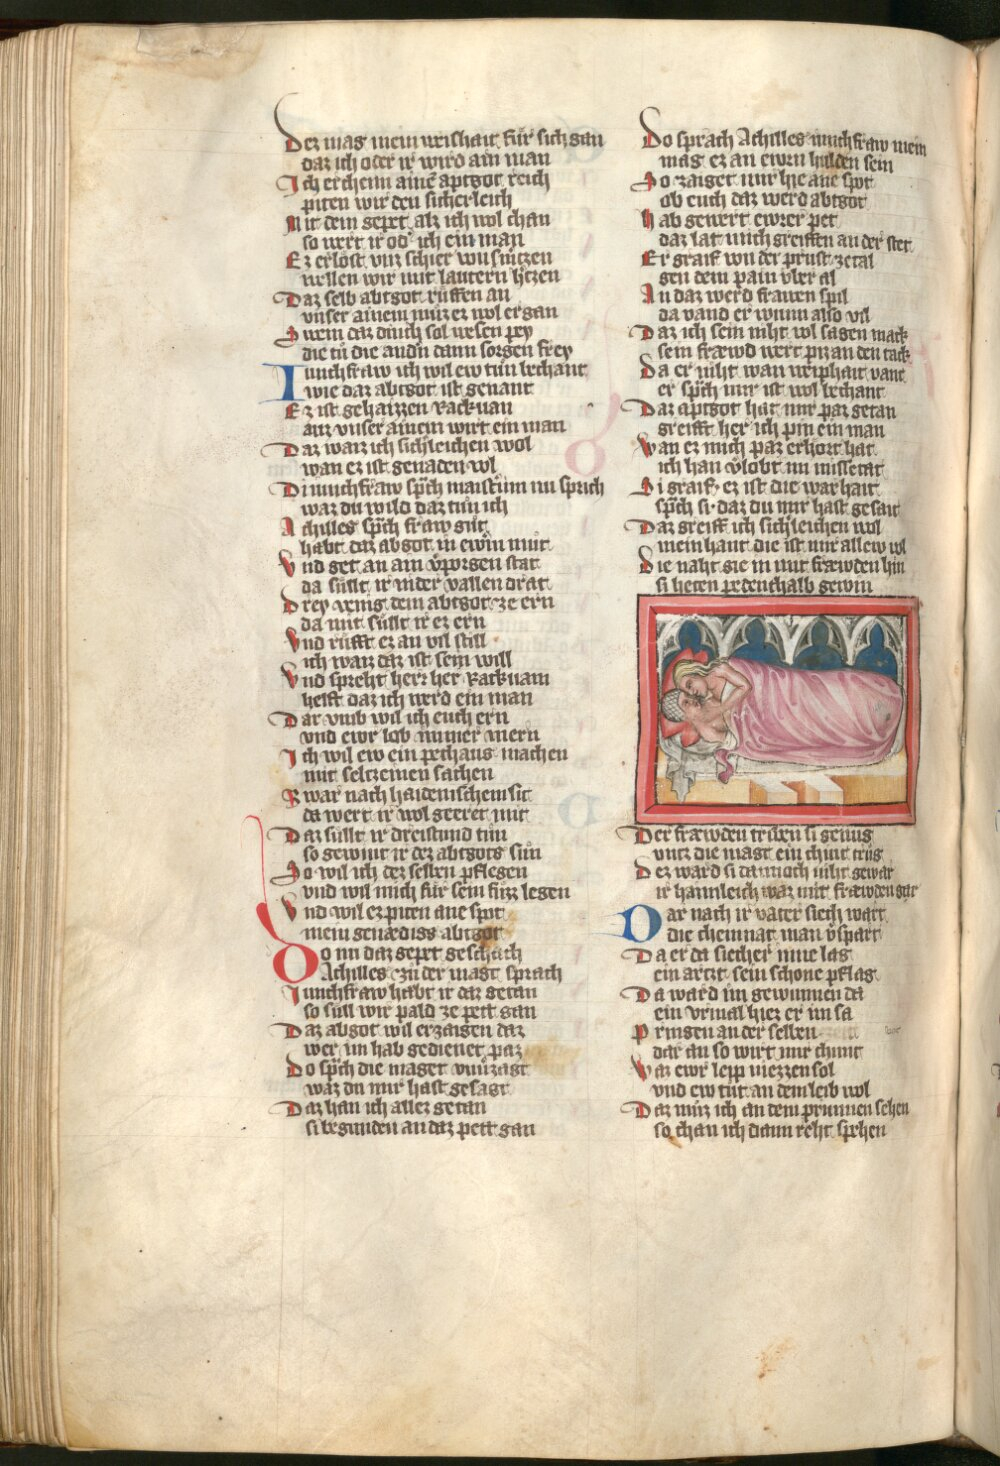 Dez mag mein weishait für sich gan
daz ich oder ir wird ain man
Ich erchenn ainē aptgot reich
piten wir den sicherleich
Mit dem gepet als ich wol chan
so wert ir od ich ein man
Ez erlost vns schier wu smitzen
wellen wir mit lautern htzen
Daz selb abtgot rüffen an
vnser ainem müz ez wol ergan
Swem daz dinch sol wesen pey
die tü die andn dann sorgen frey
Iunchfraw ich wil ew tün bechant
wie daz abtgot ist genant
Ez ist gehaizzen Rackuan
auz vnser ainem wirt ein man
Daz waiz ich sichleichen wol
wan ez ist genaden vol
Di iunchfraw sp̄ch maist̄ nu sprich
waz du wild daz tün ich
Achilles sp̄ch fraw güt
habt daz abgot in ewm müt
Vnd get an ain v̄porgen stat
da süllt ir nider vallen drat
Drey venig dem abtgot ze ern
da mit süllt ir ez ern
Vnd rüfft ez an vil still
ich waiz daz ist sein will
Vnd spreht herr her Rackuam
helft daz ich werd ein man
Dar vmb wil ich euch ern
vnd ewr lob nimmer mern
Ich wil ew ein pethaus machen
mit seltzemen sachen
Zwar nach haidenischem sit
da wert ir wol geeret mit
Daz süllt ir dreistund tün
so gewint ir dez abtgots sün
So wil ich dez selben pflegen
vnd wil mich für sein füzz legen
Vnd wil ez piten ane spot
mein genædigs abtgot
Do nu daz gepet geschach
Achilles zu der magt sprach
Iunchfraw habt ir daz getan
so süll wir pald ze pett gan
Daz abgot wil erzaigen daz
wer im hab gedienet paz
Do sp̄ch die maget vnuzagt
waz du mir hast gesagt
Daz han ich allez getan
si begunden an daz pett gan
Do sprach Achilles iunchfraw mein
mag ez an ewrn hulden sein
So zaiget mir hie ane spot
ob euch daz werd abtgot
Hab gewert ewrer pet
daz lat mich greiffen an der stet
Er graif von der prust zetal
gen dem pain vber al
An daz werd frauen spil
da vand er wunn also vil
Daz ich sein niht wol sagen mack
sein fræwd wert piz an den tack
Da er niht wan weiphait vant
er sp̄ch mir ist wol bechant
Daz aptgot hat mir paz getan
greifft her ich pin ein man
Wan ez mich paz erhort hat
ich han v̄lobt im missetat
Si graif ez ist die warhait
sp̄ch si daz du mir hast gesait
Daz greiff ich sichleichen wol
mein haut die ist mir allew vol
Die naht gie in mit fræwden hin
si heten pedenthalb gewin
Der fræwden triben si genüg
vntz die magt ein chint trüg
Dez ward si dannoch niht gewar
ir haimleich waz mit fræwden gar
Dar nach ir vater siech wart
die chemnat man v̄spart
Da er da siecher inne lag
ein artzt sein schone pflag
Da ward im gewunnen da
ein vrinal hiez er im sa
Pringen an der selben
dar an so wirt mir chunt
Waz ewr leip niezzen sol
vnd ew tüt an dem leib wol
Daz müz ich an dem prunnen sehen
so chan ich dann reht spehen